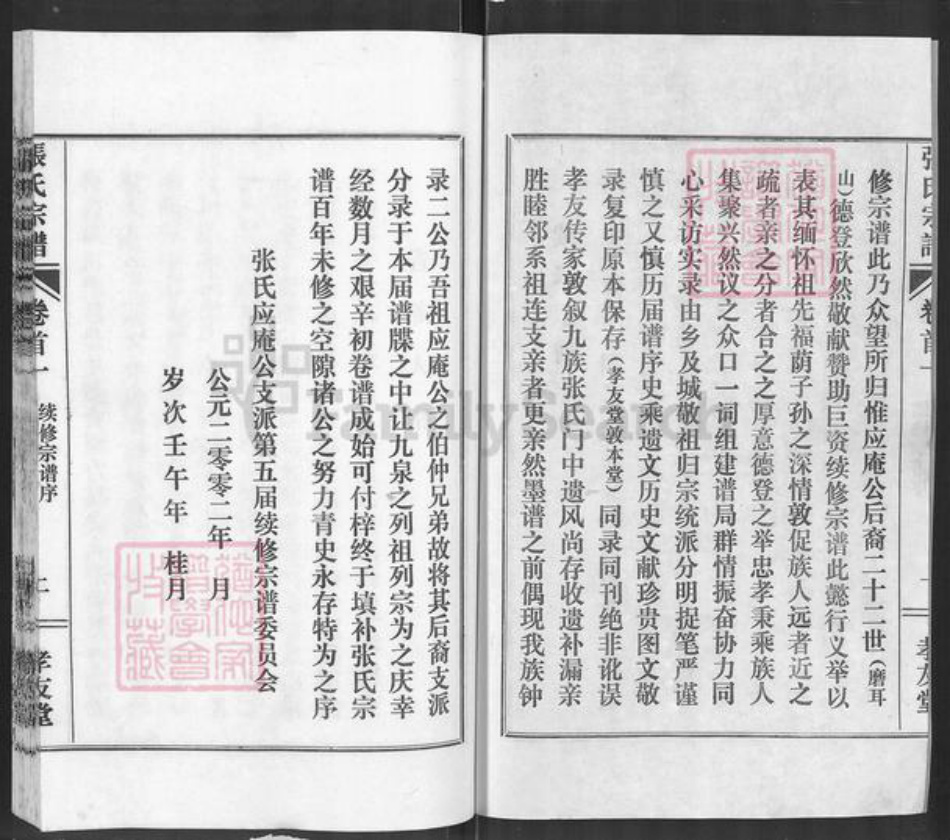 修宗谱此乃众望所归惟应庵公后裔二十二世（磨耳
山）德登欣然敬献赞助巨资续修宗谱此懿行义举以
表其缅怀祖先福荫子孙之深情敦促族人远者近之
疏者亲之分者合之之厚意德登之举忠孝秉乘族人
集聚兴然议之众口一词组建谱局群情振奋协力同
心采访实录由乡及城敬祖归宗统派分明捉笔严谨
慎之又慎历届谱序史乘遗文历史文献珍贵图文敬
录复印原本保存（孝友堂敦本堂）同录同刊绝非讹误
孝友传家敦叙九族张氏门中遗风尚存收遗补漏亲
胜睦邻系祖连支亲者更亲然墨谱之前偶现我族钟
录二公乃吾祖应庵公之伯仲兄弟故将其后裔支派
分录于本届谱牒之中让九泉之列祖列宗为之庆幸
经数月之艰辛初卷谱成始可付梓终于填补张氏宗
谱百年未修之空隙诸公之努力青史永存特为之序
张氏应庵公支派第五届续修宗谱委员会
公元二零零二年 月
岁次壬午年 桂月
張氏宗谱
卷首一
续修宗谱序
上
孝友堂
FamilySearch